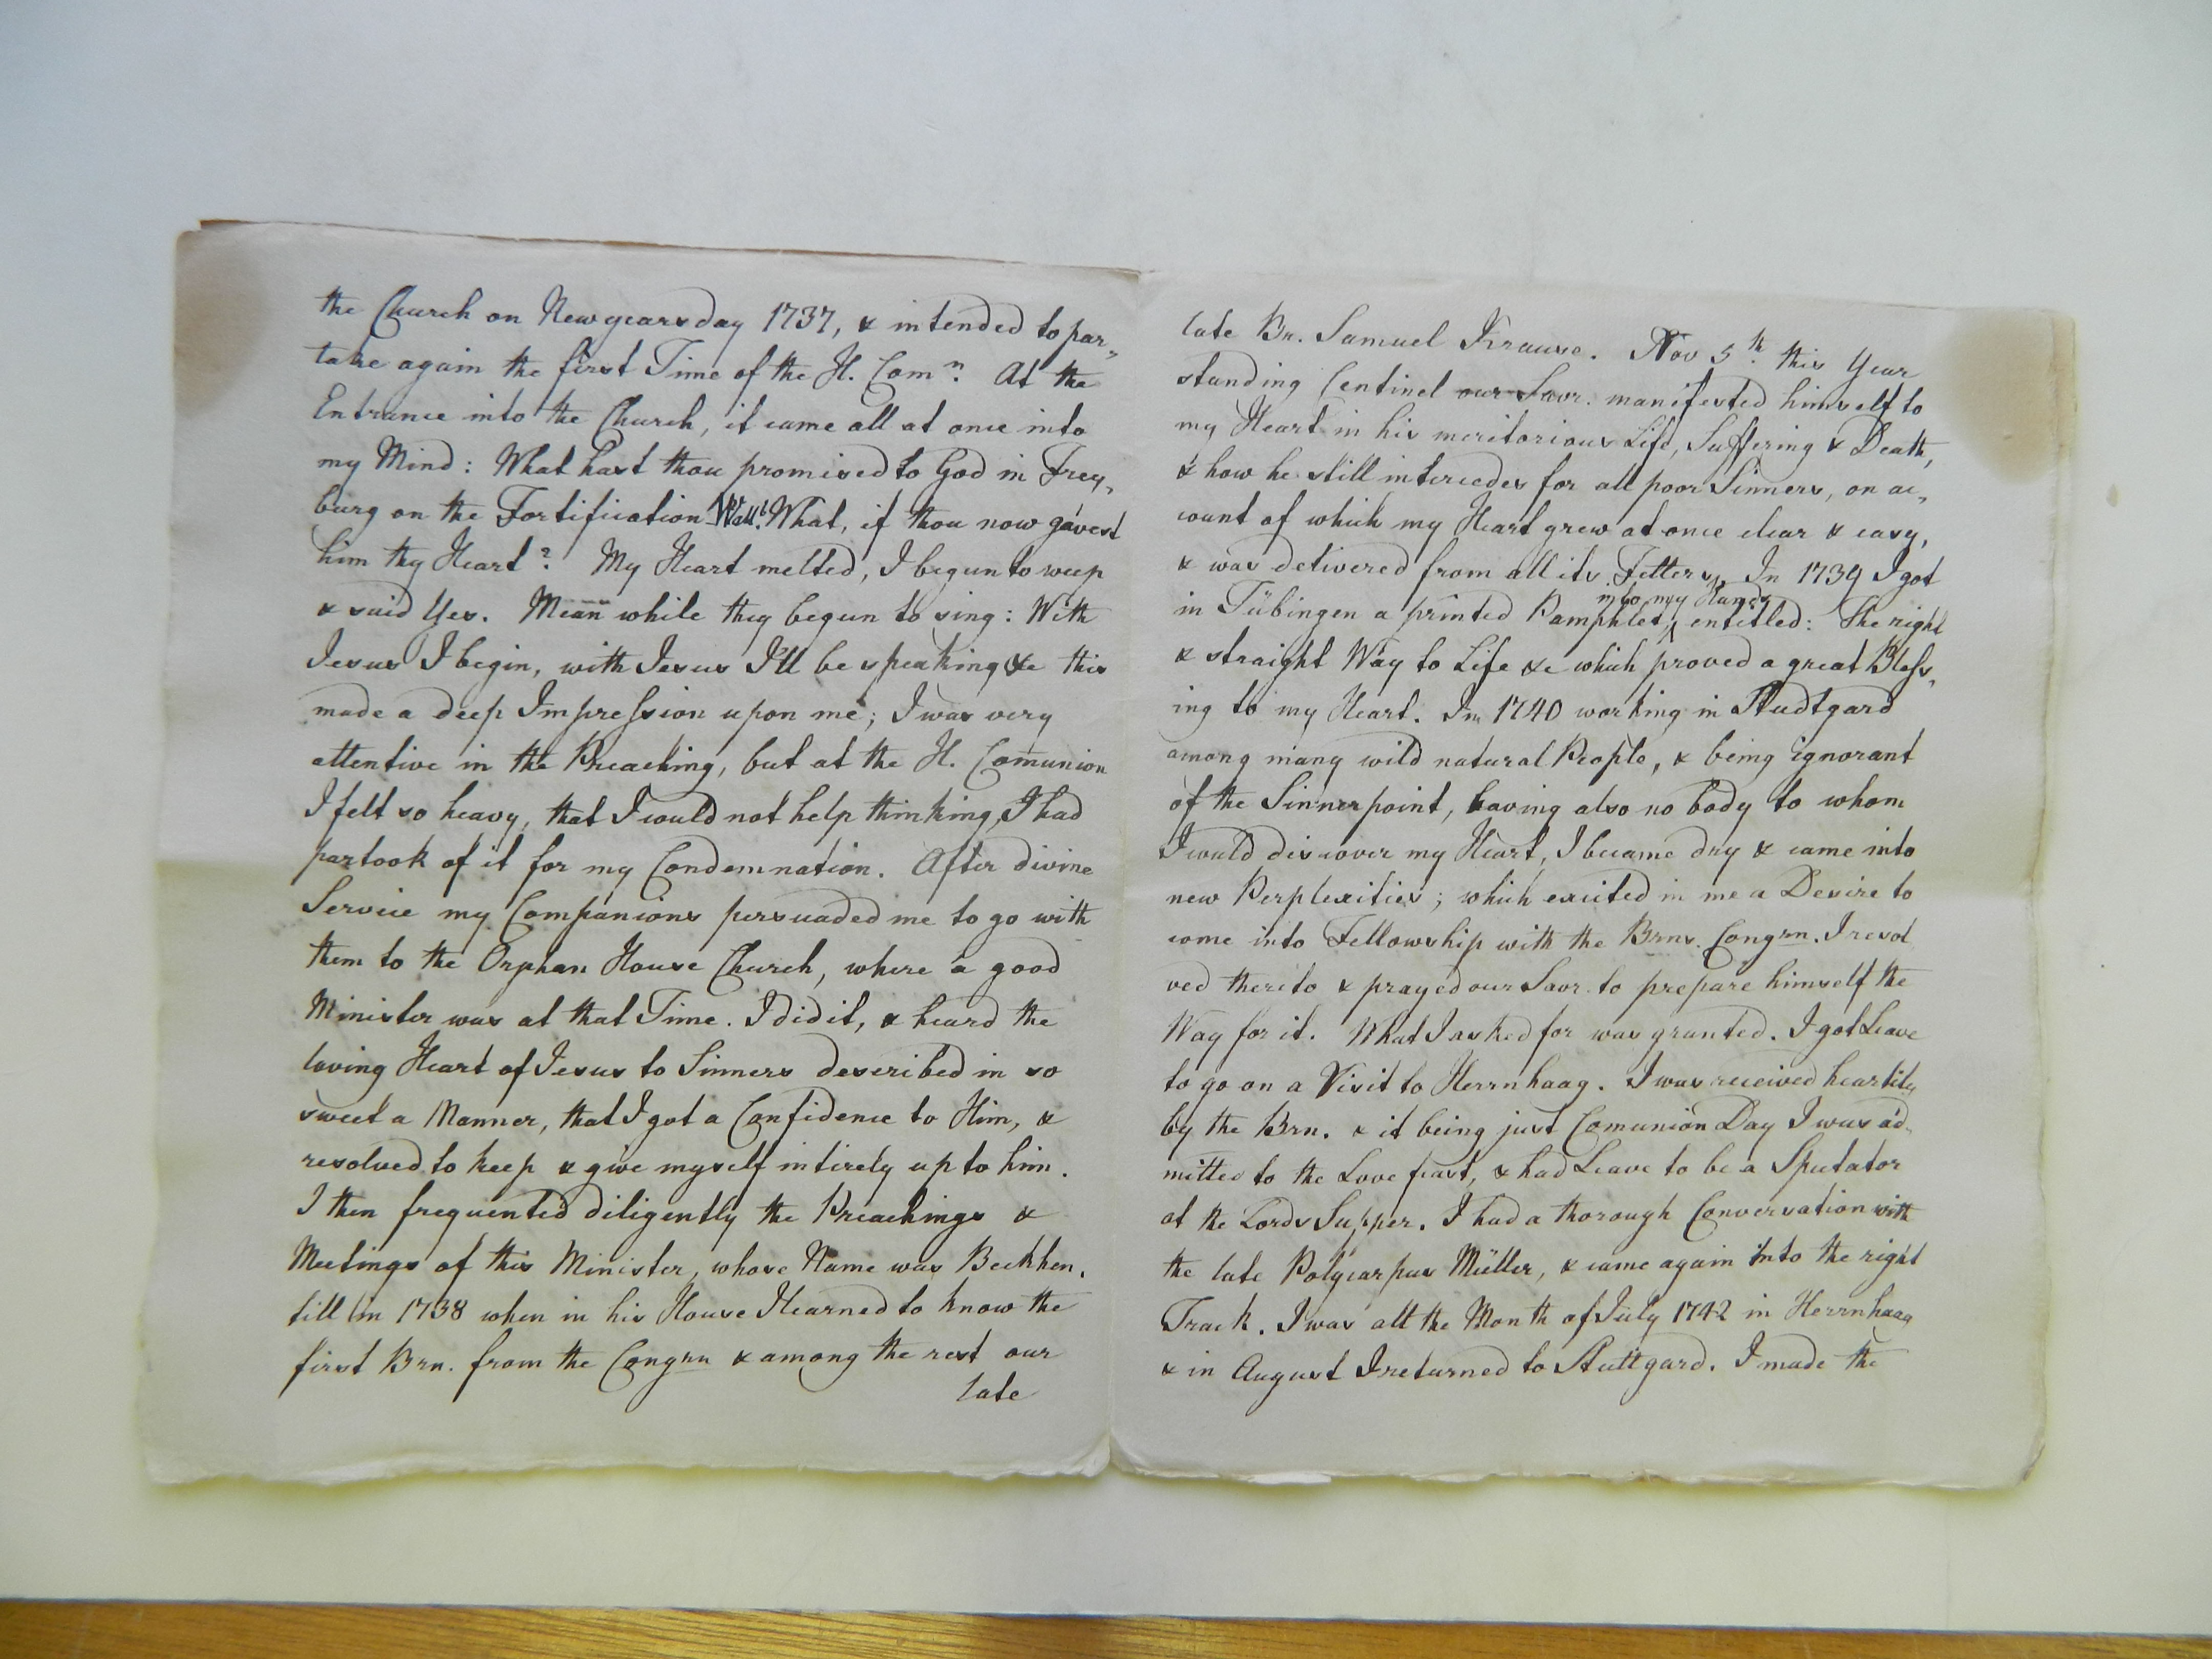 the Church on Newyearsday 1737, & intended to par-
take again the first Time of the H. Comn. At the
Entrance into the Church, it came all at once into
my Mind: What hast thou promised to God in Frey-
burg on the Fortification Wall? What, if thou now gavest
him thy Heart? My Heart melted, I begun to weep
& said Yes. Mean while they begun to sing: With
Jesus I begin, with Jesus I'll be speaking &c this
made a deep Impression upon me; I was very
attentive in the Preaching, but at the H. Comunion
I felt so heavy, that I could not help thinking, I had
partook of it for my Condemnation. After divine
Service my Companions persuaded me to go with
them to the Orphan House Church, where a good
Minister was at that Time. I did it, & heard the
loving Heart of Jesus to Sinners described in so
sweet a Manner, that I got a Confidence to Him, &
resolved to keep & give myself intirely up to him.
I then frequented diligently the Preachings &
Meetings of this Minister, whose Name was Beckhen,
till in 1738 when in his House I learned to know the
first Brn. from the Congrn & among the rest our
late
late Br. Samuel Krause. Nov 5th. this Year
standing Centinel our Savr. manifested himself to
my Heart in his meritorious Life, Suffering & Death,
& how he still intercedes for all poor Sinners, on ac-
count of which my Heart grew at once clear & easy,
& was delivered from all its Fetters. In 1739 I got
into my Hands
in Tübingen a printed Pamphlet, entitled: The right
& straight Way to Life &c which proved a great Bless-
ing to my Heart. In 1740 working in Studtgard
among many wild natural People, & being ignorant
of the Sinnerpoint, having also no body to whom
I could discover my Heart, I became dry & came into
new Perplexities; which excited in me a Desire to
come into Fellowship with the Brns. Congrn. I resol
ved thereto & prayed our Savr. to prepare himself the
Way for it. What I asked for was granted. I got Leave
to go on a Visit to Herrnhaag. I was received heartily
by the Brn. & it being just Comunion Day I was ad-
mitted to the Lovefeast, & had Leave to be a Spectator
at the Lords Supper. I had a thorough Conversation with
the late Polycarpus Müller, & came again into the right
Track. I was all the Month of July 1742 in Herrnhaag
& in August I returned to Stuttgard. I made the